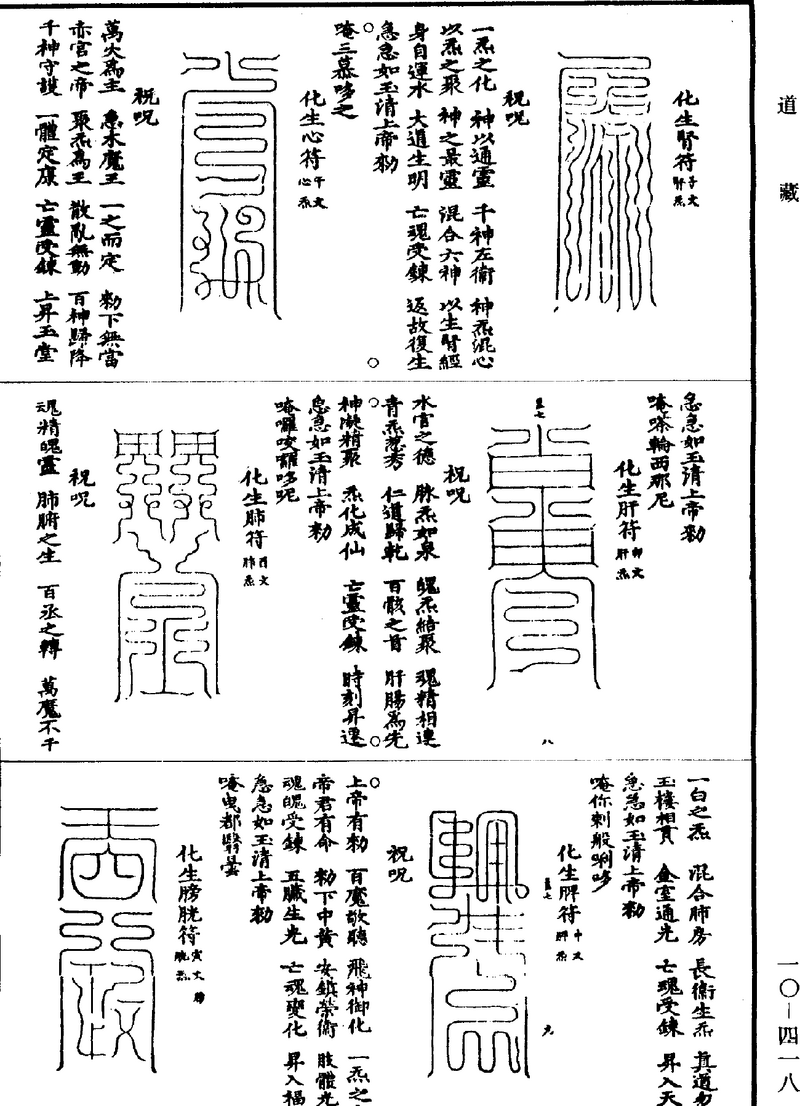 道藏
化生腎符
子文
祝呪
一炁之化 神以通靈 千神左衛 神炁混心
以炁之聚 神之最靈 混合六神 以生腎經
身自運水 大道生明 亡魂受鍊 返故復生
急急如玉清上帝勑
唵三慕哆之
化生心符
午文
心炁
祝呪
萬火為主 惠水魔王 一之而定 勑下無當
赤宮之帝 聚炁為王 散亂無動 百神歸降
千神守護 一體定康 亡靈受鍊 上昇玉堂
急急如玉清上帝勑
唵嗏輪西那尼
化生肝符
卯文
肝炁
祝呪
水宮之德 脉炁如泉 魄炁結聚 魂精相連
青炁慈秀 仁道歸乾 百骸之首 肝腸為先
神凝精聚 炁化成仙 亡靈受鍊 時刻昇遷
急急如玉清上帝勑
唵囉唆囉哆呢
化生肺符
酉文
肺炁
祝呪
魂精魄靈 肺腑之生 百丞之轉 萬魔不干
八
一白之炁 混合肺房 長衛生炁
玉樓相貫 金室通光 亡魂受鍊 昇入天
急急如玉清上帝勑
唵你刺般唎哆
化生脾符
中文
肝炁
祝呪
上帝有勑 百魔敬聽 飛神御化 一炁之
帝君有命 勑下中黃 安鎮榮衛 肢體光
魂魄受鍊 五臟生光 亡魂變化 昇入福
急急如玉清上帝勑
唵曳都醫曇
化生膀胱符
寅文
九
一〇—四一八